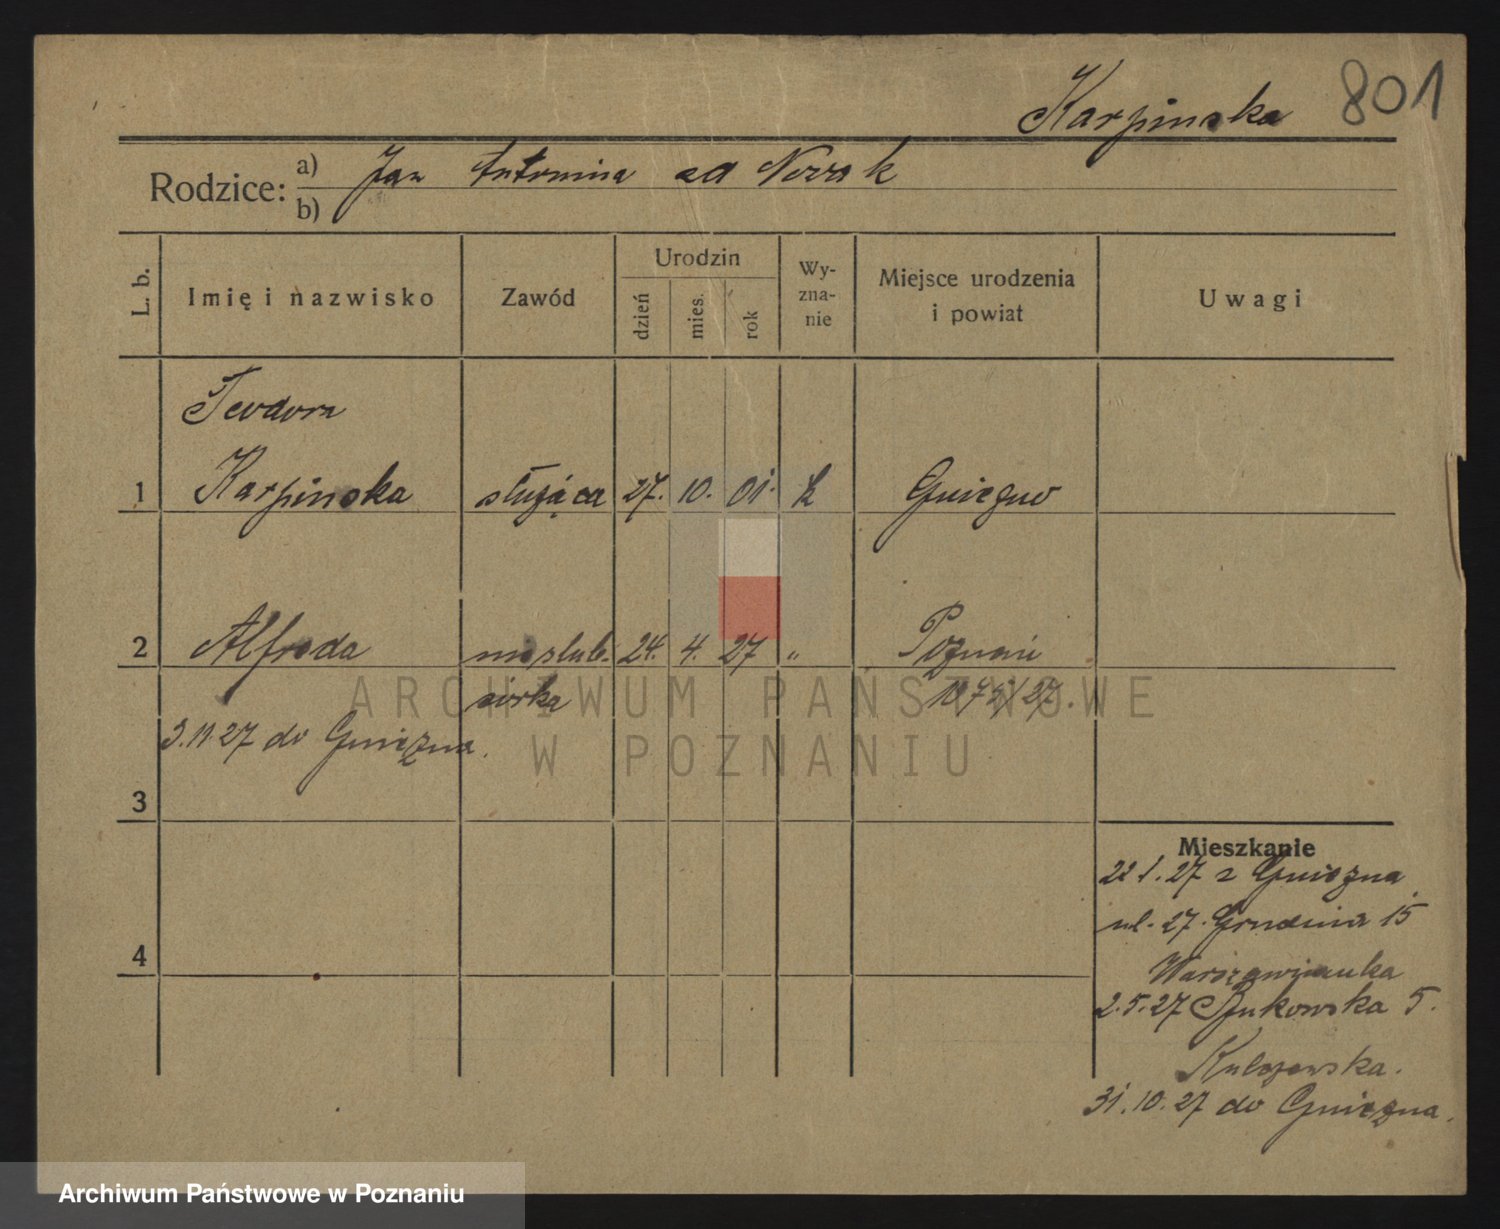 Karpinska 801
Rodzice: a) Jan Antonina od Nowak
b)
L. b. Imię i nazwisko Zawód Urodzin dzień mies. rok Wyzna-nie Miejsce urodzenia i powiat Uwagi
Teodora
1 Karpinska służąca 27. 10. 01. k Gniezno
2 Alfreda nieślub. 24. 4. 27 " Poznań
córka 1075/27.
3.11.27 do Gniezna.
3
Mieszkanie
22 1. 27 z Gniezna
ul. 27. Grudnia 15
4
2.5.27 Bukowska 5.
31.10.27 do Gniezna.
ARCHIWUM PAŃSTWOWE
W POZNANIU
Archiwum Państwowe w Poznaniu